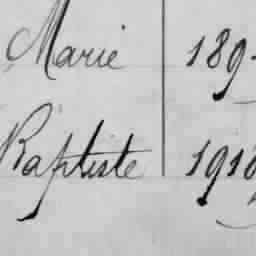 Marie 189
Baptiste 1910